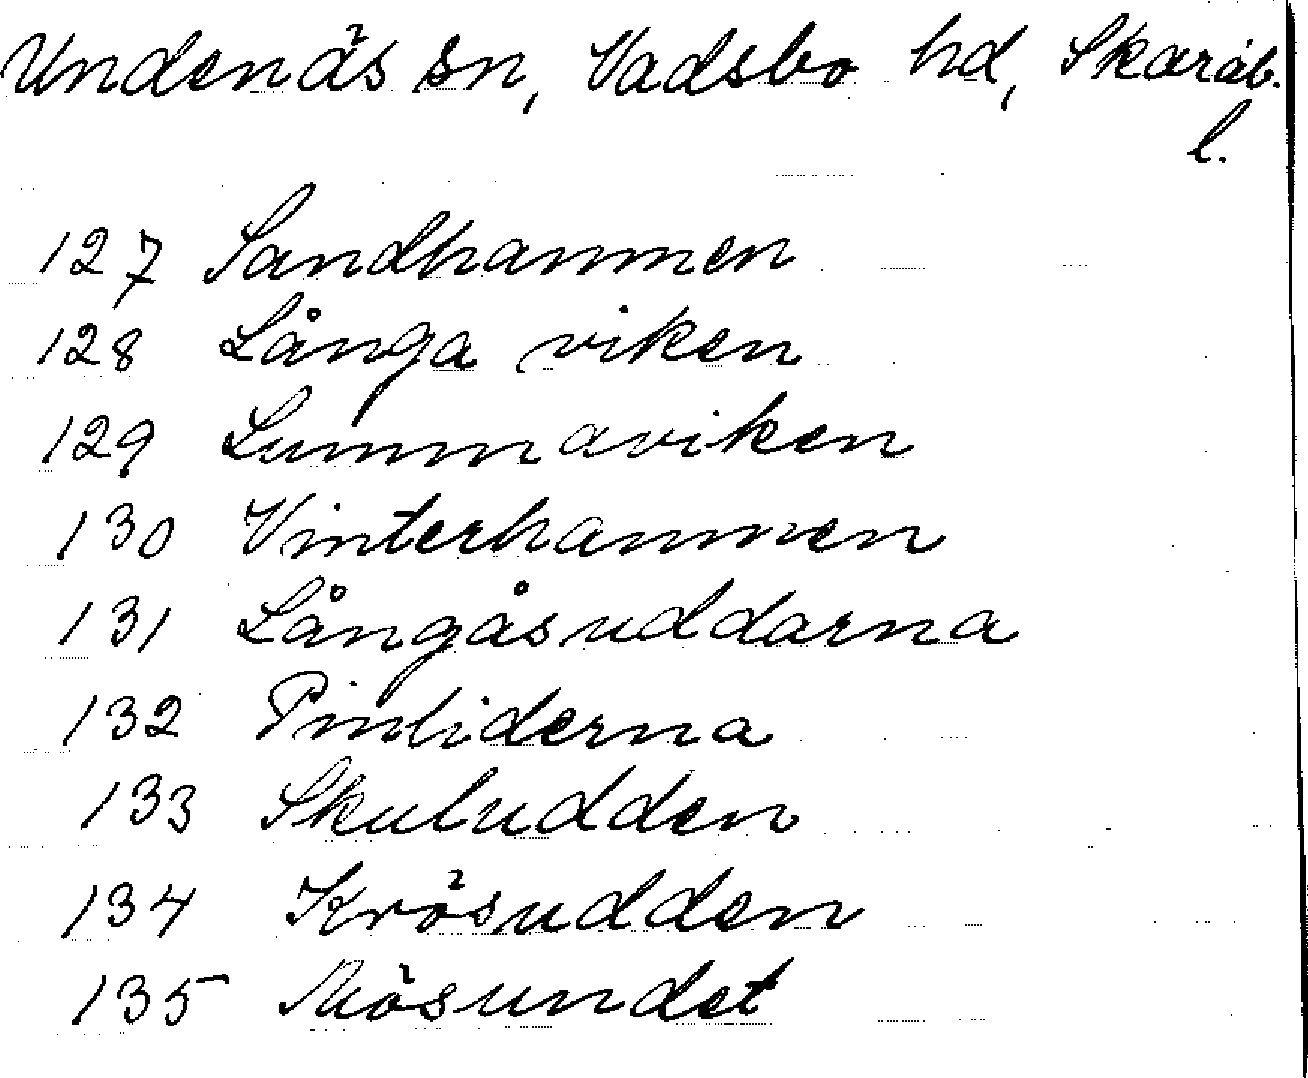 Undenäs sn, Vadsbo hd, Skarab.
l.
127 Sandhamnen
128 Långa viken
129 Lummaviken
130 Vinterhamnen
131 Långåsuddarna
132
133 Skuludden
134 Krösudden
135 Mösundet